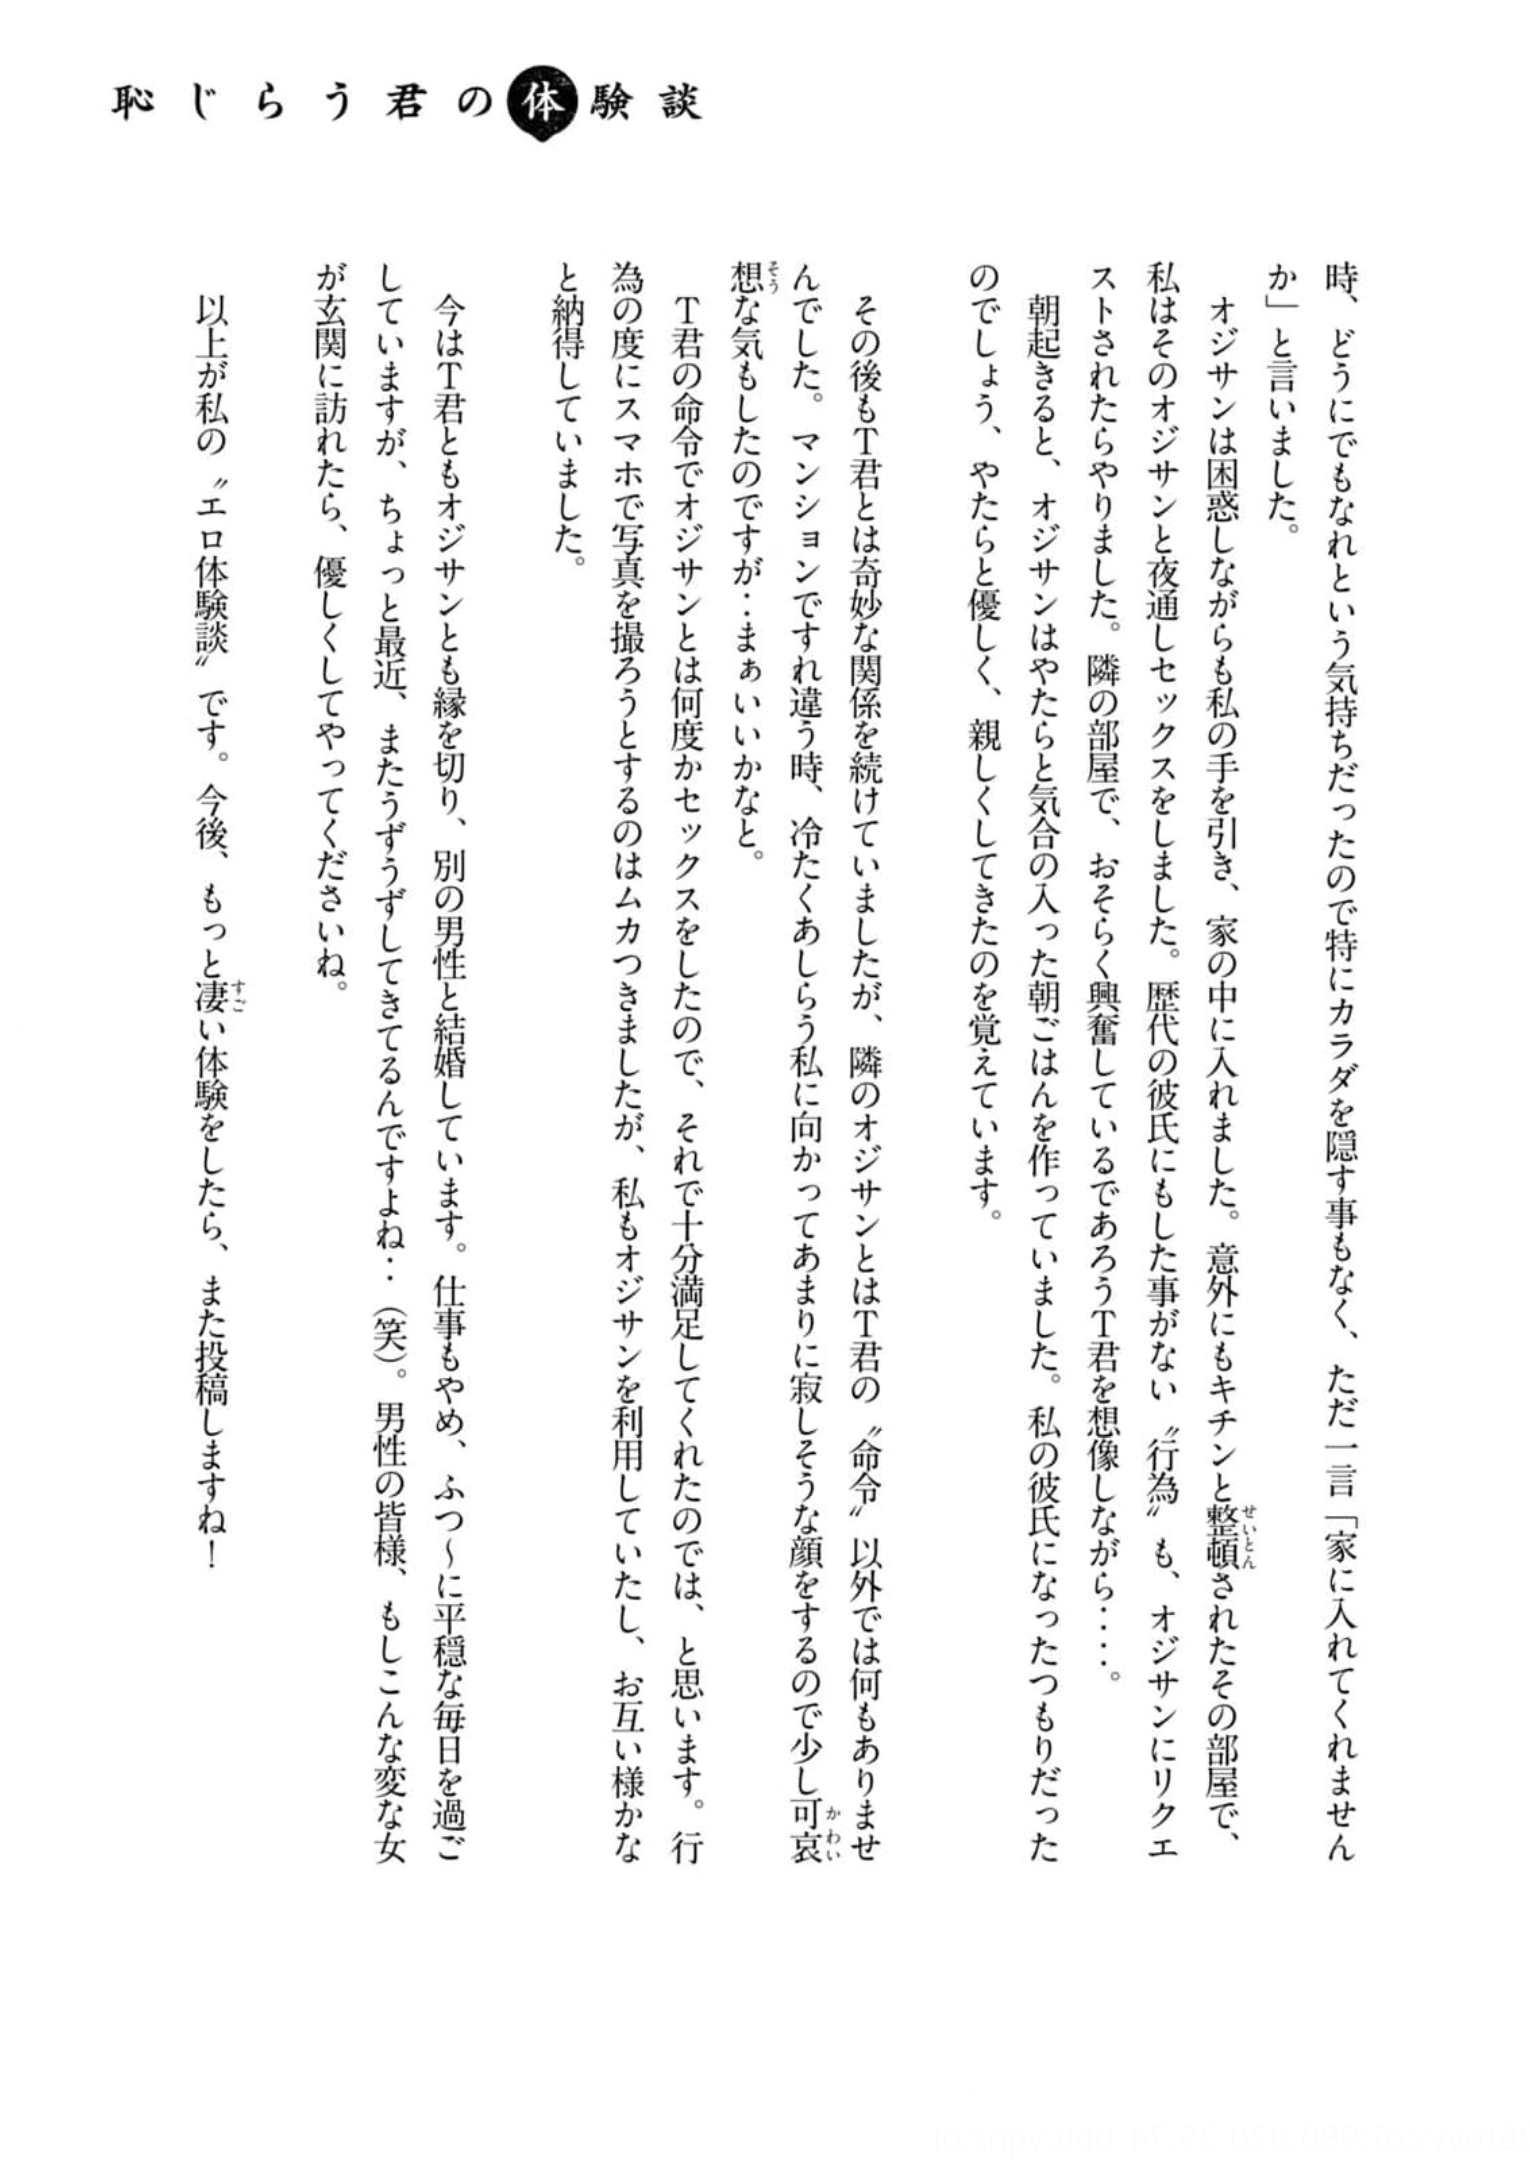 恥じらう君の体験談
時、どうにでもなれという気持ちだったので特にカラダを隠す事もなく、ただ一言「家に入れてくれません
か」と言いました。
オジサンは困惑しながらも私の手を引き、家の中に入れました。意外にもキチンと整頓されたその部屋で、
私はそのオジサンと夜通しセックスをしました。歴代の彼氏にもした事がない〝行為〟も、オジサンにリクエ
ストされたらやりました。隣の部屋で、おそらく興奮しているであろうT君を想像しながら‥‥。
朝起きると、オジサンはやたらと気合の入った朝ごはんを作っていました。私の彼氏になったつもりだった
のでしょう、やたらと優しく、親しくしてきたのを覚えています。
その後もT君とは奇妙な関係を続けていましたが、隣のオジサンとはT君の〝命令〟以外では何もありませ
んでした。マンションですれ違う時、冷たくあしらう私に向かってあまりに寂しそうな顔をするので少し可哀
想な気もしたのですが‥まぁいいかなと。
T君の命令でオジサンとは何度かセックスをしたので、それで十分満足してくれたのでは、と思います。行
為の度にスマホで写真を撮ろうとするのはムカつきましたが、私もオジサンを利用していたし、お互い様かな
と納得していました。
今はT君ともオジサンとも縁を切り、別の男性と結婚しています。仕事もやめ、ふつ～に平穏な毎日を過ご
していますが、ちょっと最近、またうずうずしてきてるんですよね‥（笑）。男性の皆様、もしこんな変な女
が玄関に訪れたら、優しくしてやってくださいね。
以上が私の〝エロ体験談〟です。今後、もっと凄い体験をしたら、また投稿しますね！